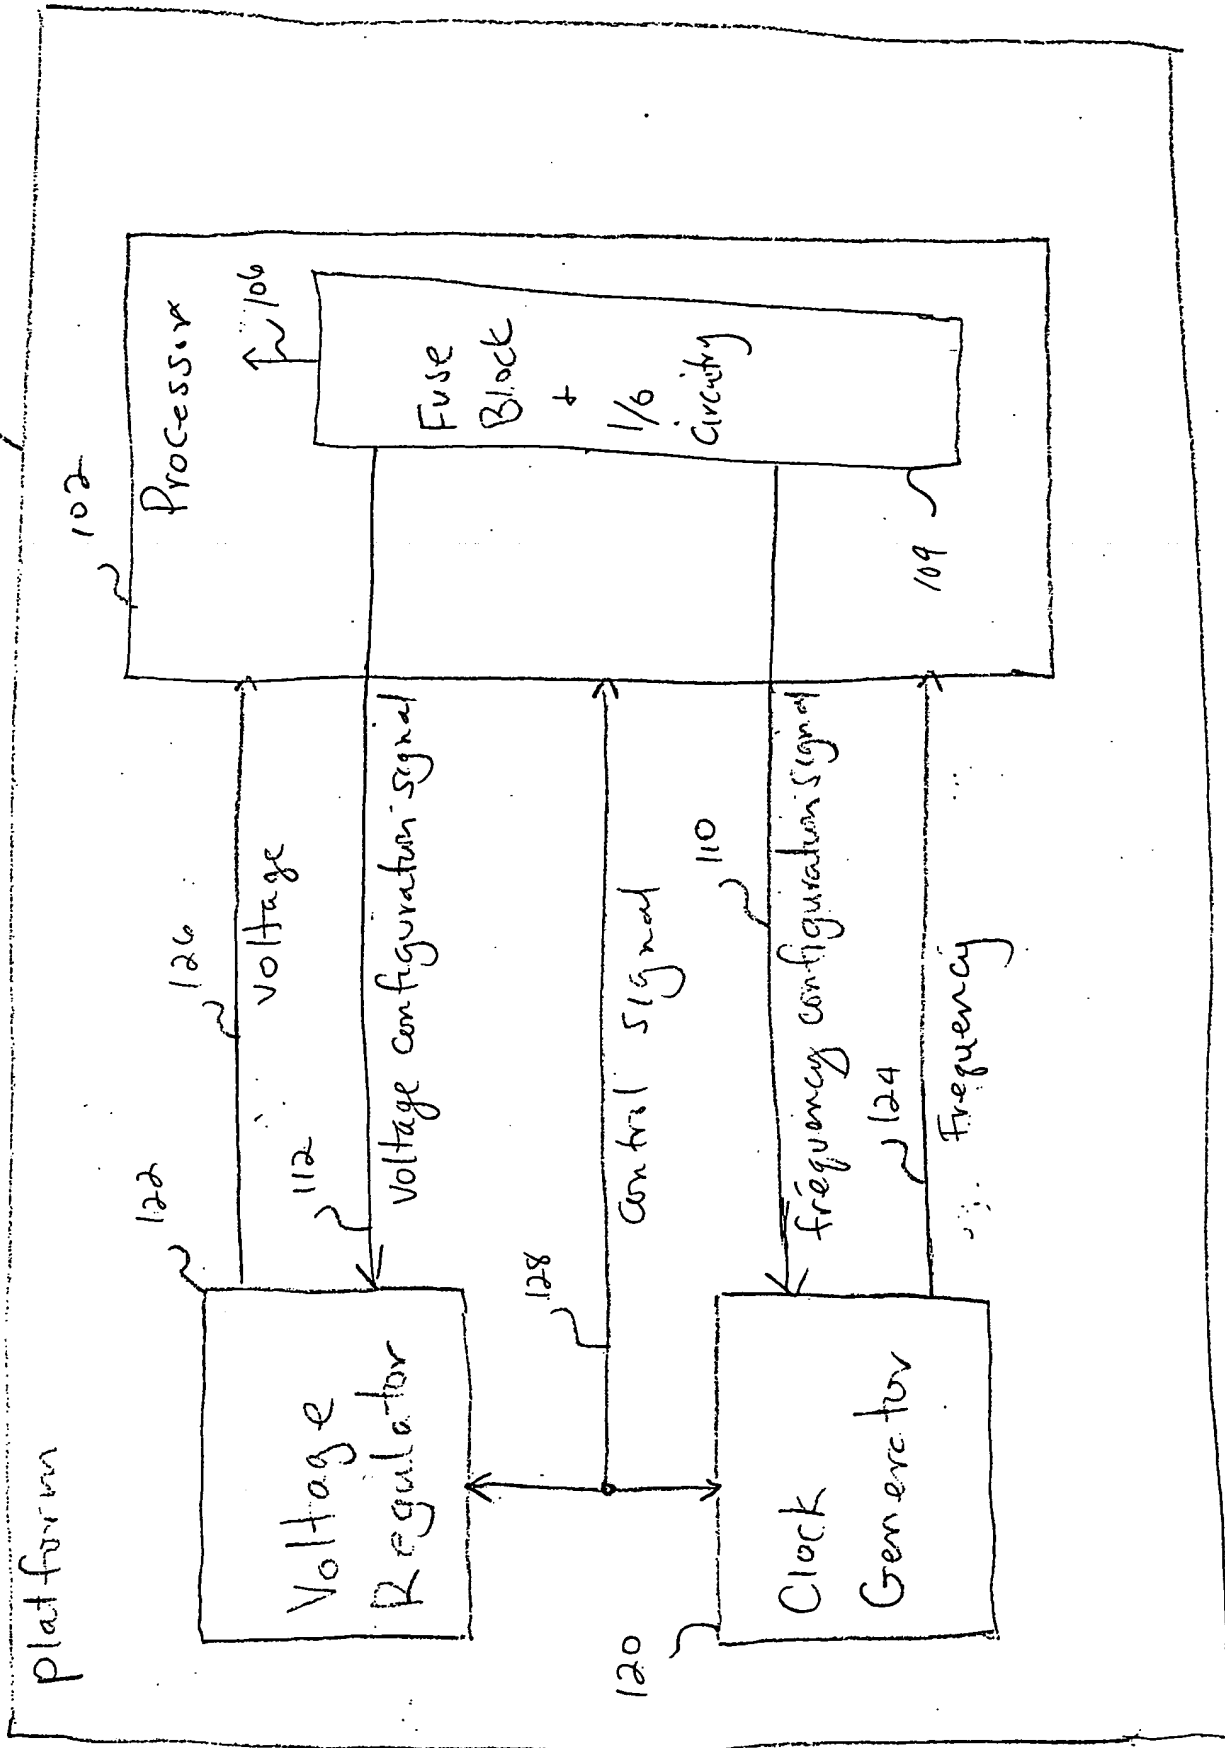 platform
102
Processor
106
Fuse
Block
+
I/O
Circuitry
109
126
voltage
112
voltage configuration signal
128
control signal
110
frequency configuration signal
124
Frequency
122
Voltage
Regulator
120
Clock
Generator